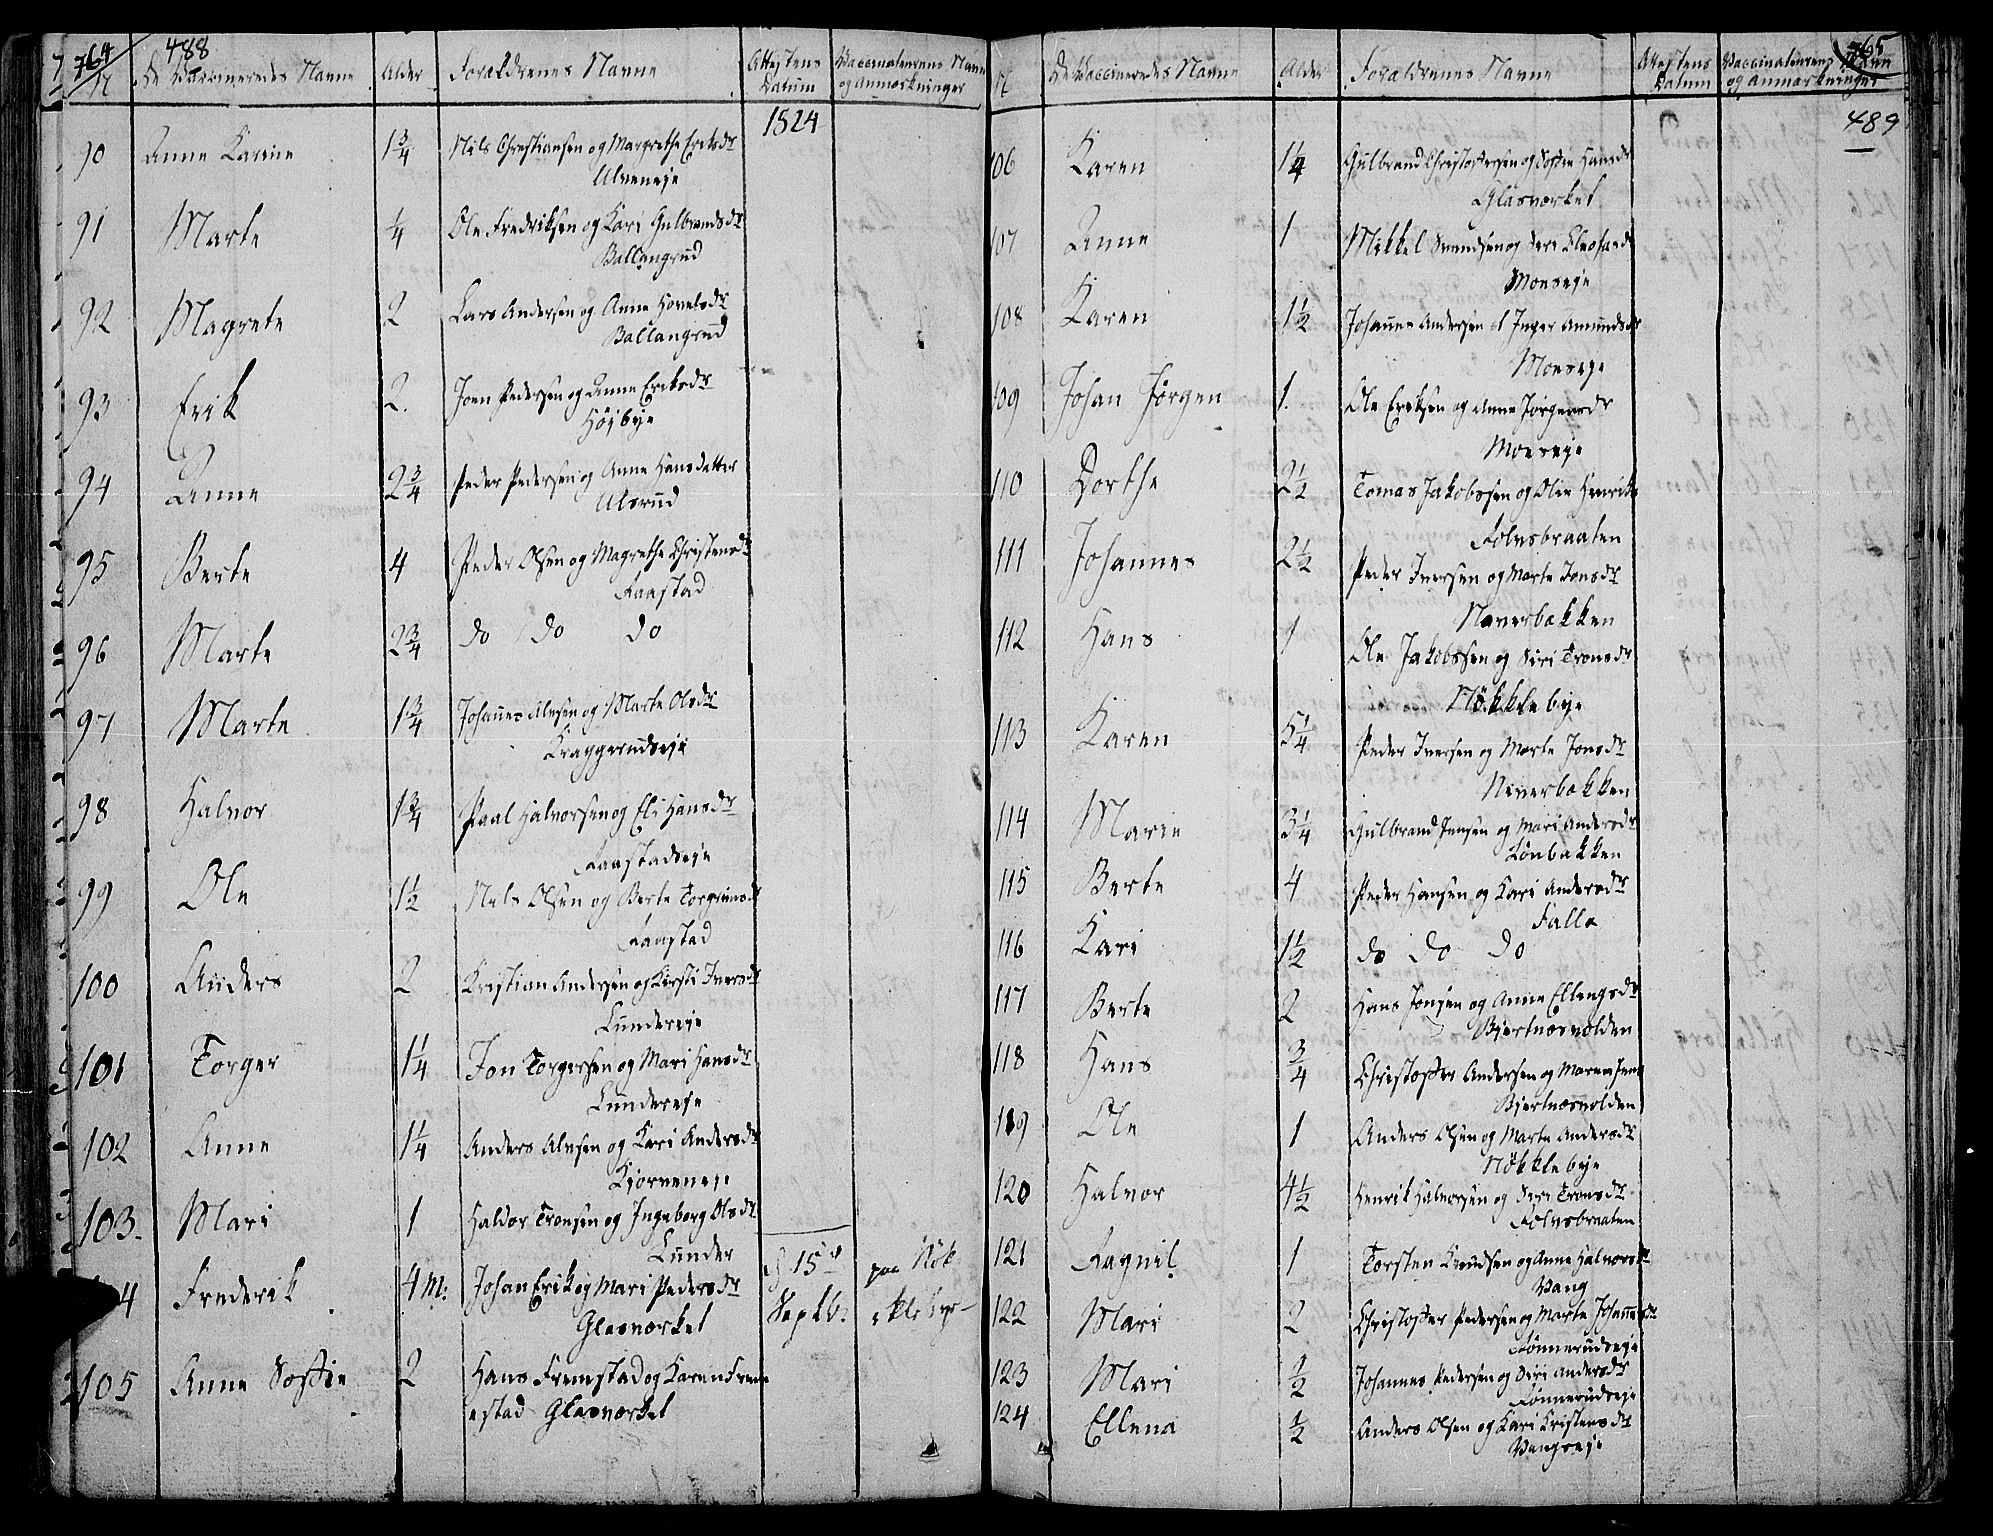 764 488
N De Vaccineredes Navne Alder Forældrenes Navne Attestens Datum Vaccinateurens Navn og Anmærkninger
1824
90 Anne Karine 1 3/4 Nils Christiansen og Margrethe Eriksdr
Alveneje
91 Marte 1/4 Ole Fredriksen og Kari Gulbrandsdr
Ballangrud
92 Magrete 2 Lars Andersen og Anne Hovelsdr
Ballangrud
93 Erik 2. Joen Pedersen og Anne Eriksdr
Höjbye
94 Anne 2 3/4 Peder Pedersen og Anne Hansdatter
Ulsrud
95 Berte 4 Peder Olsen og Magrethe Christensdr
Faastad
96 Marte 2 3/4 do do do
97 Marte 1 3/4 Johannes Alvsen og Marte Olsdr
Kraggerudseje
98 Halvor 1 3/4 Paal Halvorsen og Eli Hansdr
Faastadseje
99 Ole 1 1/2 Nels Olsen og Berte Torgrimsdr
Faastad
100 Anders 2 Kristian Andersen og Kirsti Iversdr
Lundereje
101 Torger 1 1/4 Jon Torgersen og Mari Hansdr
Lundereje
102 Anne 1 1/4 Anders Alvsen og Kari Andersdr
Kjorveneje
103. Mari 1 Haldor Tronsen og Ingeborg Olsdr
Lunder
104 Frederik 4 M. Johan Erik og Mari Pedersdr
Glasværket
15de Septbr. paa Nökklebye
105 Anne Soffie 2 Hans Fremstad og Karen Fremestad Glasværket
765
N De Vaccineredes Navne Alder Forældrenes Navne Attestens Datum Vaccinateurens Navn og Anmærkninger
489
106 Karen 1 1/4 Gulbrand Christoffersen og Soffie Hansdr
Glasværket
107 Anne 1 Mikkel Svendsen og Siri
Moeseje
108 Karen 1 1/2 Johannes Andersen og Inger Amundsdr
Moeseje
109 Johan Jörgen 1. Ole Eriksen og Anne Jörgensdr
Moeseje
110 Dorthe 2 1/2 Tomas Jakobssen og Olia Henriks
Folvsbraaten
111 Johannes 2 1/2 Peder Iversen og Marte Jonsdr
Neverbækken
112 Hans 1 Ole Jakobssen og Siri Tronsdr
Nökklebye
113 Karen 5 1/4 Peder Iversen og Marte Jonsdr
Neverbækken
114 Marie 3 1/4 Gulbrand Jensen og Mari Andersdr
Lönbakken
115 Berte 4 Peder Hansen og Kari Andersdr
Falla
116 Kari 1 1/2 do do do
117 Berte 2 Hans Jonsen og Anne Ellengsdr
Bjertnæsvolden
118 Hans 3/4 Christoffer Andersen og Maren Jens
Bjertnæsvolden
119 Ole 1 Anders Olsen og Marte Andersdr
Nökklebye
120 Halvor 4 1/2 Henrik Halvorsen og Siri Tronsdr
Folvsbraaten
121 Ragnil 1 Torsten Knudsen og Anne Halvorsdr
Vang
122 Mari 2 Christoffer Pedersen og Marte Johannesdr
Fönnerudseje
123 Mari 1/2 Johannes Pedersen og Siri Andersdr
Fönnerudseje
124 Ellena 1/2 Anders Olsen og Kari Kristensdr
Vangseje